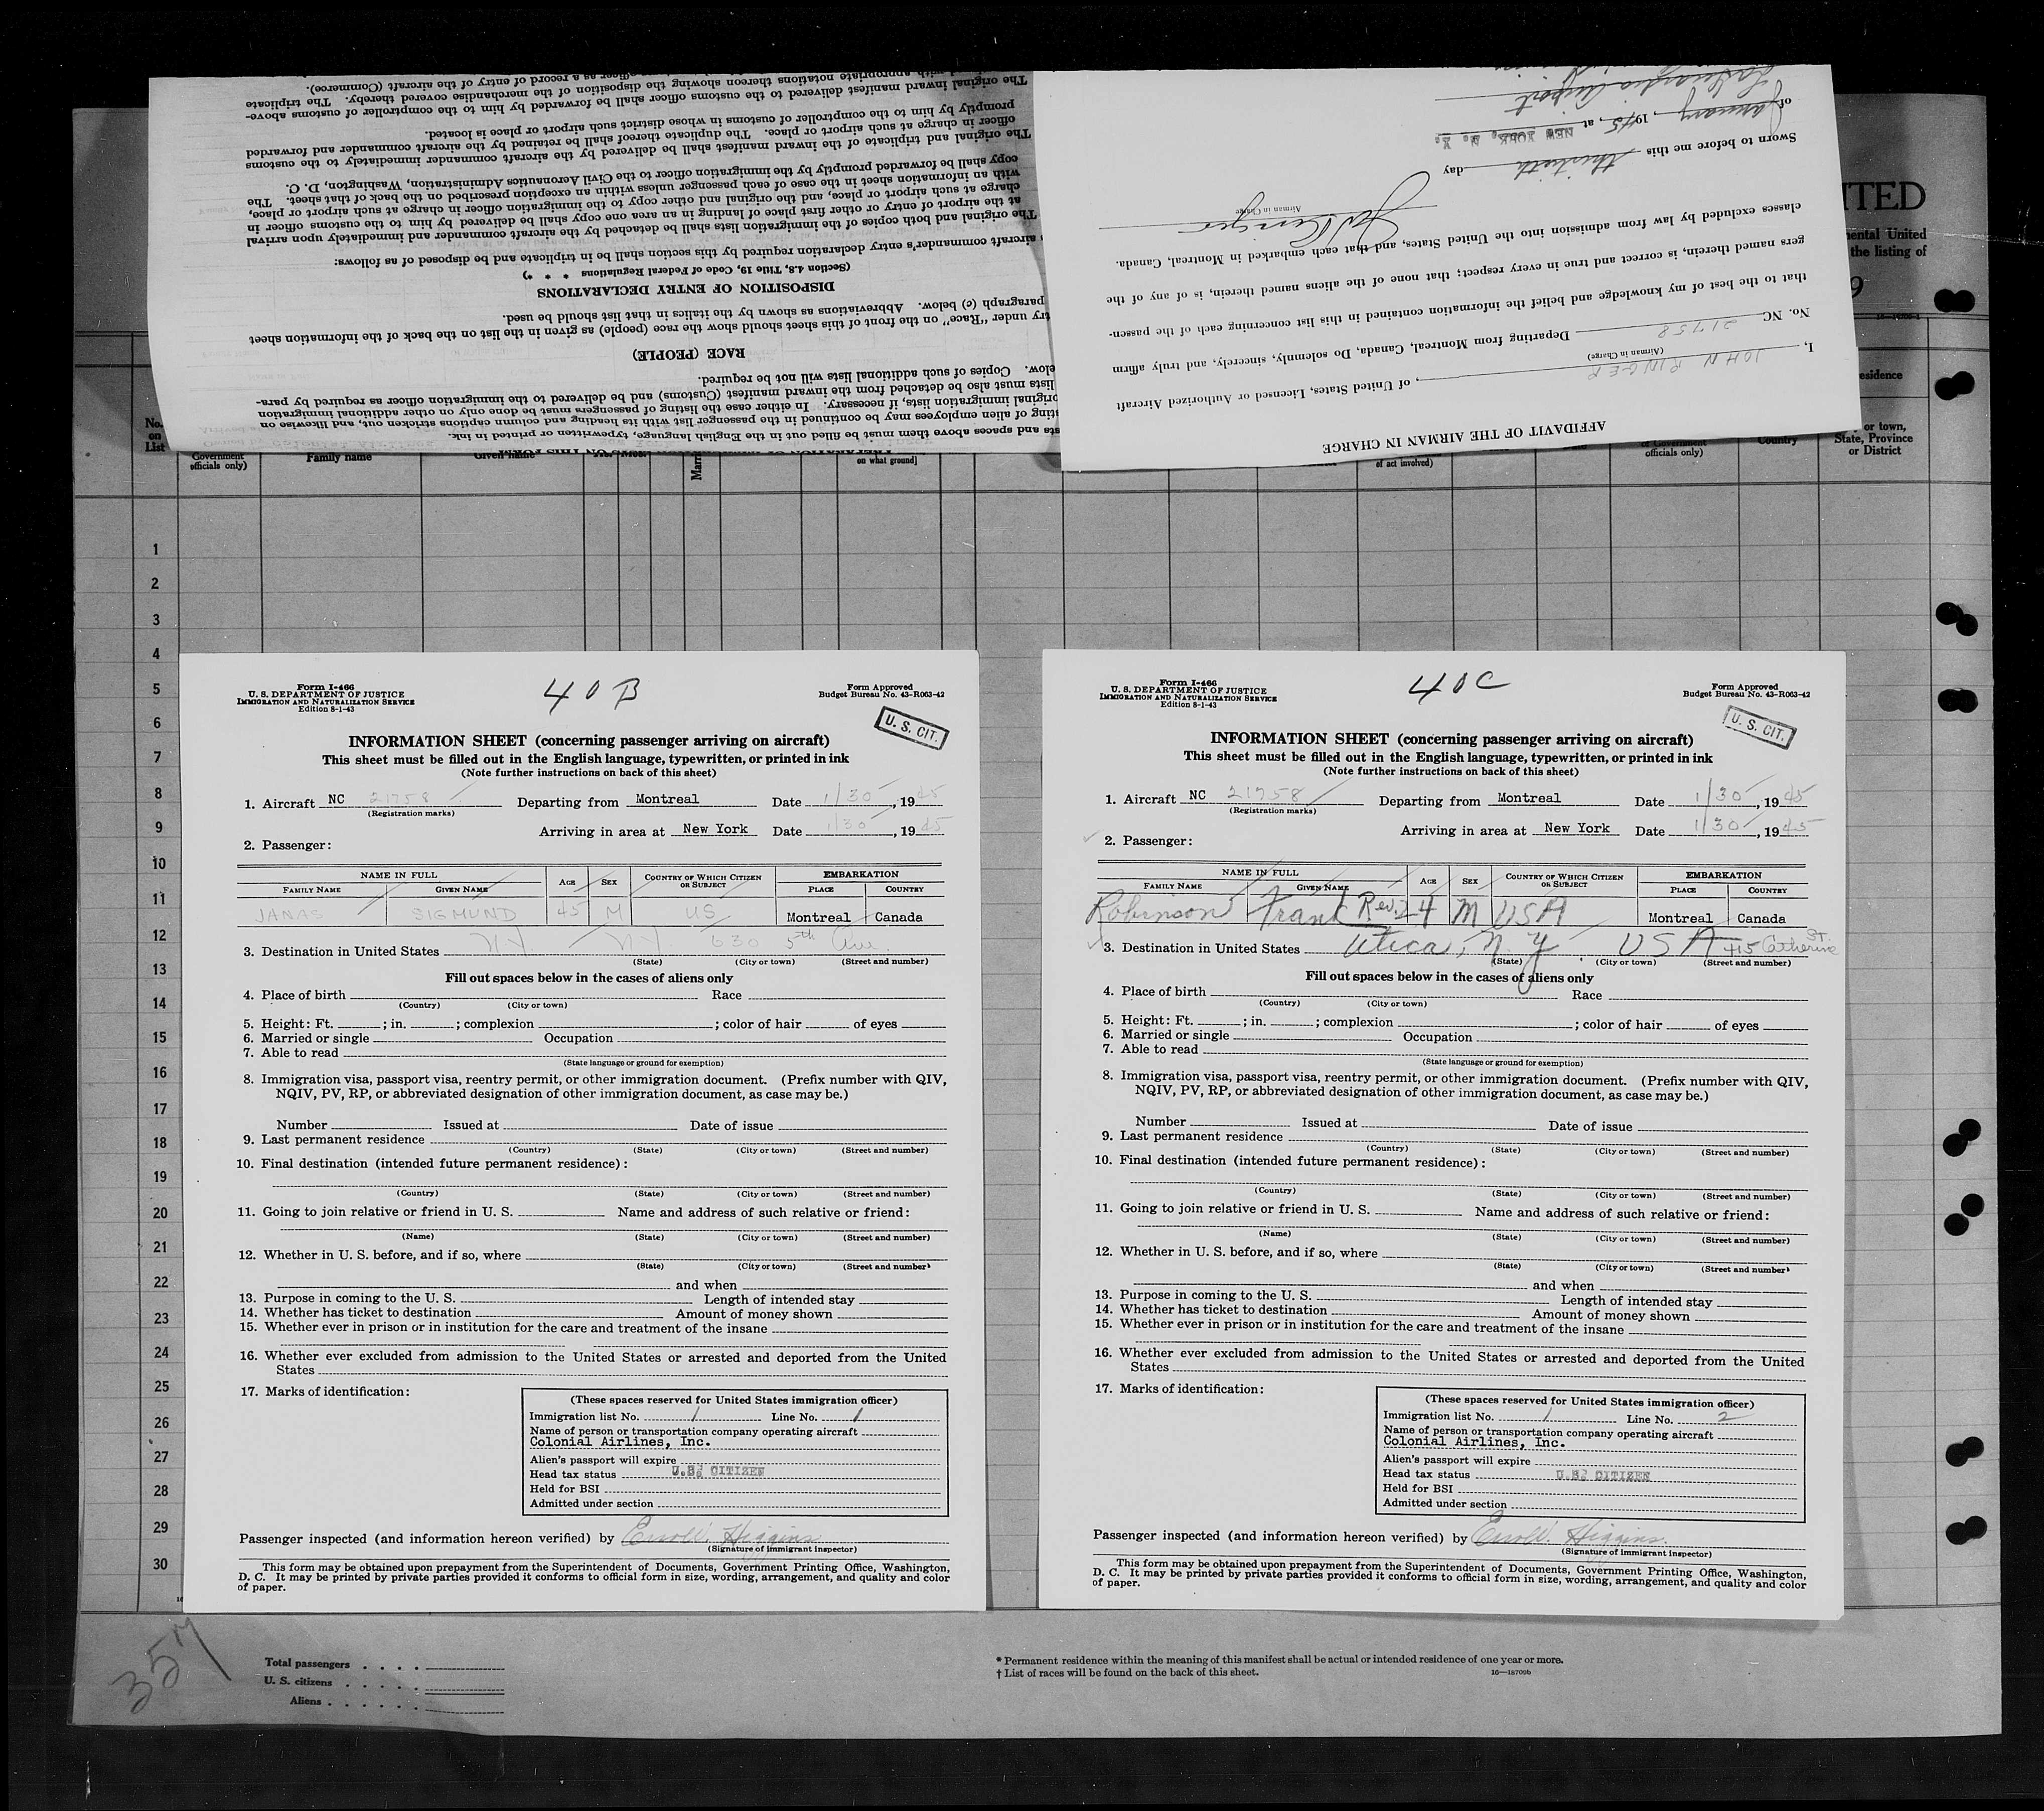 with appropriate notations thereon showing the disposition of the merchandise covered thereby. The triplicate
The original inward manifest delivered to the customs officer shall be forwarded by him to the comptroller of customs above-
promptly by him to the comptroller of customs in whose district such airport or place is located.
officer in charge at such airport or place. The duplicate thereof shall be retained by the aircraft commander and forwarded
The original and triplicate of the inward manifest shall be delivered by the aircraft commander immediately to the customs
copy shall be forwarded promptly by the immigration officer to the Civil Aeronautics Administration, Washington, D. C.
with an information sheet in the case of each passenger unless within an exception prescribed on the back of that sheet. The
charge at such airport or place, and the original and other copy to the immigration officer in charge at such airport or place,
at the airport of entry or other first place of landing in an area one copy shall be delivered by him to the customs officer in
The original and both copies of the immigration lists shall be detached by the aircraft commander and immediately upon arrival
aircraft commander's entry declaration required by this section shall be in triplicate and be disposed of as follows:
(Section 4.8, Title 19, Code of Federal Regulations * * *)
DISPOSITION OF ENTRY DECLARATIONS
paragraph (c) below. Abbreviations as shown by the italics in that list should be used.
try under "Race" on the front of this sheet should show the race (people) as given in the list on the back of the information sheet
RACE (PEOPLE)
elow. Copies of such additional lists will not be required.
lists must also be detached from the inward manifest (Customs) and be delivered to the immigration officer as required by para-
original immigration lists, if necessary. In either case the listing of passengers must be done only on other additional immigration
ting of alien employees may be continued in the passenger list with its heading and column captions stricken out, and likewise on
ts and spaces above them must be filled out in the English language, typewritten or printed in ink.
AFFIDAVIT OF THE AIRMAN IN CHARGE
I, JOHN RINGER, of United States, Licensed or Authorized Aircraft
(Airman in Charge)
No. NC 21758 Departing from Montreal, Canada, Do solemnly, sincerely, and truly affirm
that to the best of my knowledge and belief the information contained in this list concerning each of the passen-
gers named therein, is correct and true in every respect; that none of the aliens named therein, is of any of the
classes excluded by law from admission into the United States, and that each embarked in Montreal, Canada.
Airman in Charge
Sworn to before me this thirtieth day
of January, 1945, at NEW YORK, N. Y.
LaGuardia Airport
ITED
ental United
the listing of
9
esidence
or town,
State, Province
or District
No.
on
List
Government
officials only)
Family name
Given name
on what ground]
of act involved)
of Government
officials only)
Country
1
2
3
4
5
6
7
8
9
10
11
12
13
14
15
16
17
18
19
20
21
22
23
24
25
26
27
28
29
30
Form I-466
U. S. DEPARTMENT OF JUSTICE
IMMIGRATION AND NATURALIZATION SERVICE
Edition 8-1-43
40 B
Form Approved
Budget Bureau No. 43-R063-42
U. S. CIT.
INFORMATION SHEET (concerning passenger arriving on aircraft)
This sheet must be filled out in the English language, typewritten, or printed in ink
(Note further instructions on back of this sheet)
1. Aircraft NC 21758 Departing from Montreal Date 1/30, 1945
(Registration marks)
Arriving in area at New York Date 1/30, 1945
2. Passenger:
NAME IN FULL AGE SEX COUNTRY OF WHICH CITIZEN OR SUBJECT EMBARKATION
FAMILY NAME GIVEN NAME PLACE COUNTRY
JANAS SIGMUND 45 M US Montreal Canada
3. Destination in United States NY NY 630 5th Ave.
(State) (City or town) (Street and number)
Fill out spaces below in the cases of aliens only
4. Place of birth Race
(Country) (City or town)
5. Height: Ft. ; in. ; complexion ; color of hair of eyes
6. Married or single Occupation
7. Able to read
(State language or ground for exemption)
8. Immigration visa, passport visa, reentry permit, or other immigration document. (Prefix number with QIV,
NQIV, PV, RP, or abbreviated designation of other immigration document, as case may be.)
Number Issued at Date of issue
9. Last permanent residence
(Country) (State) (City or town) (Street and number)
10. Final destination (intended future permanent residence):
(Country) (State) (City or town) (Street and number)
11. Going to join relative or friend in U. S. Name and address of such relative or friend:
(Name) (State) (City or town) (Street and number)
12. Whether in U. S. before, and if so, where
(State) (City or town) (Street and number)
and when
13. Purpose in coming to the U. S. Length of intended stay
14. Whether has ticket to destination Amount of money shown
15. Whether ever in prison or in institution for the care and treatment of the insane
16. Whether ever excluded from admission to the United States or arrested and deported from the United
States
17. Marks of identification:
(These spaces reserved for United States immigration officer)
Immigration list No. 1 Line No. 1
Name of person or transportation company operating aircraft
Colonial Airlines, Inc.
Alien's passport will expire
Head tax status U.S. CITIZEN
Held for BSI
Admitted under section
Passenger inspected (and information hereon verified) by Errol Higgins
(Signature of immigrant inspector)
This form may be obtained upon prepayment from the Superintendent of Documents, Government Printing Office, Washington,
D. C. It may be printed by private parties provided it conforms to official form in size, wording, arrangement, and quality and color
of paper.
Form I-466
U. S. DEPARTMENT OF JUSTICE
IMMIGRATION AND NATURALIZATION SERVICE
Edition 8-1-43
40C
Form Approved
Budget Bureau No. 43-R063-42
U. S. CIT.
INFORMATION SHEET (concerning passenger arriving on aircraft)
This sheet must be filled out in the English language, typewritten, or printed in ink
(Note further instructions on back of this sheet)
1. Aircraft NC 21758 Departing from Montreal Date 1/30, 1945
(Registration marks)
Arriving in area at New York Date 1/30, 1945
2. Passenger:
NAME IN FULL AGE SEX COUNTRY OF WHICH CITIZEN OR SUBJECT EMBARKATION
FAMILY NAME GIVEN NAME PLACE COUNTRY
Robinson Frank Rev. 24 M USA Montreal Canada
3. Destination in United States Utica, N.Y USA 415 Catherine ST.
(State) (City or town) (Street and number)
Fill out spaces below in the cases of aliens only
4. Place of birth Race
(Country) (City or town)
5. Height: Ft. ; in. ; complexion ; color of hair of eyes
6. Married or single Occupation
7. Able to read
(State language or ground for exemption)
8. Immigration visa, passport visa, reentry permit, or other immigration document. (Prefix number with QIV,
NQIV, PV, RP, or abbreviated designation of other immigration document, as case may be.)
Number Issued at Date of issue
9. Last permanent residence
(Country) (State) (City or town) (Street and number)
10. Final destination (intended future permanent residence):
(Country) (State) (City or town) (Street and number)
11. Going to join relative or friend in U. S. Name and address of such relative or friend:
(Name) (State) (City or town) (Street and number)
12. Whether in U. S. before, and if so, where
(State) (City or town) (Street and number)
and when
13. Purpose in coming to the U. S. Length of intended stay
14. Whether has ticket to destination Amount of money shown
15. Whether ever in prison or in institution for the care and treatment of the insane
16. Whether ever excluded from admission to the United States or arrested and deported from the United
States
17. Marks of identification:
(These spaces reserved for United States immigration officer)
Immigration list No. 1 Line No. 2
Name of person or transportation company operating aircraft
Colonial Airlines, Inc.
Alien's passport will expire
Head tax status U.S. CITIZEN
Held for BSI
Admitted under section
Passenger inspected (and information hereon verified) by Errol Higgins
(Signature of immigrant inspector)
This form may be obtained upon prepayment from the Superintendent of Documents, Government Printing Office, Washington,
D. C. It may be printed by private parties provided it conforms to official form in size, wording, arrangement, and quality and color
of paper.
357
Total passengers
U. S. citizens
Aliens
* Permanent residence within the meaning of this manifest shall be actual or intended residence of one year or more.
† List of races will be found on the back of this sheet.
16—18709b